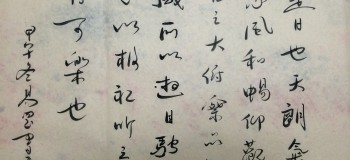 是日也天朗氣
惠風和暢仰觀
宙之大俯察品
盛所以遊目騁
足以極視聽之
信可樂也
甲午冬易